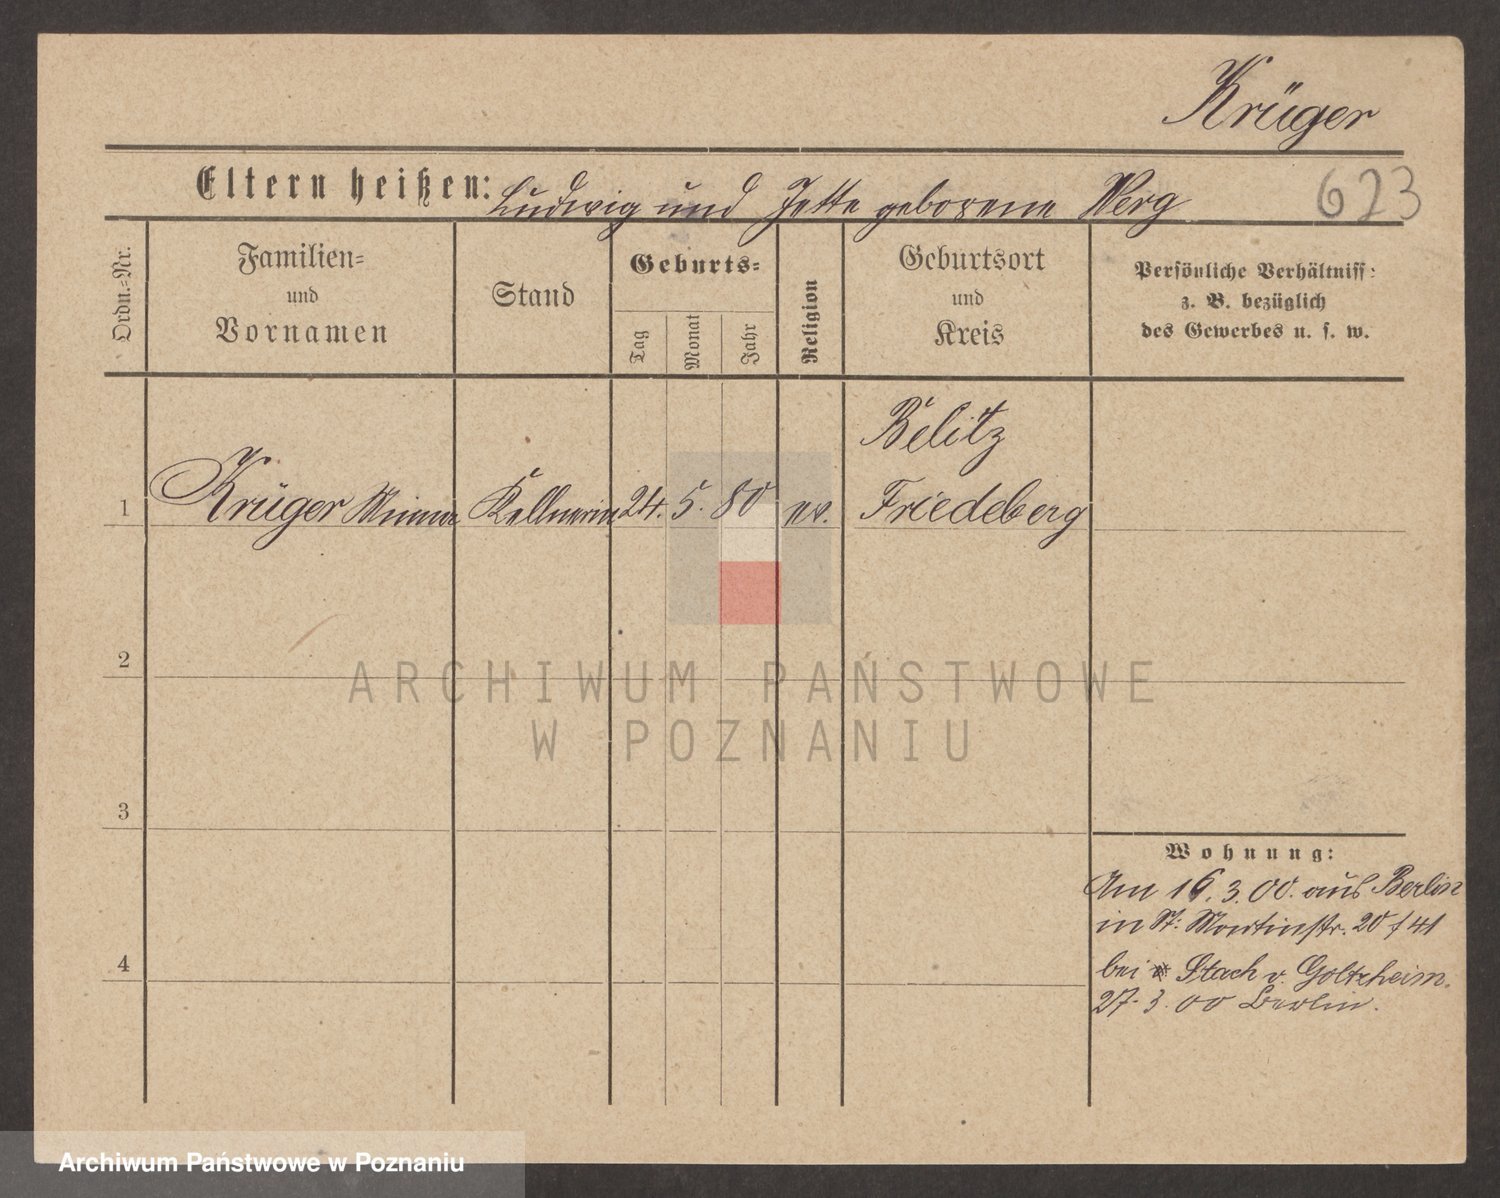 Krüger
Eltern heißen: Ludwig und Jette geborene Werg
623
Ordn.=Nr.
Familien=
und
Vornamen
Stand
Geburts=
Tag
Monat
Jahr
Religion
Geburtsort
und
Kreis
Persönliche Verhältniss:
z. B. bezüglich
des Gewerbes u. s. w.
Belitz
1 Krüger Minna Kellnerin 24. 5. 80 ev. Friedeberg
2
ARCHIWUM PAŃSTWOWE
W POZNANIU
3
Wohnung:
Am 16. 3. 00. aus Berlin
in St: Martinstr. 20 / 41
4
bei Stach v. Goltzheim.
27. 3. 00 Berlin.
Archiwum Państwowe w Poznaniu